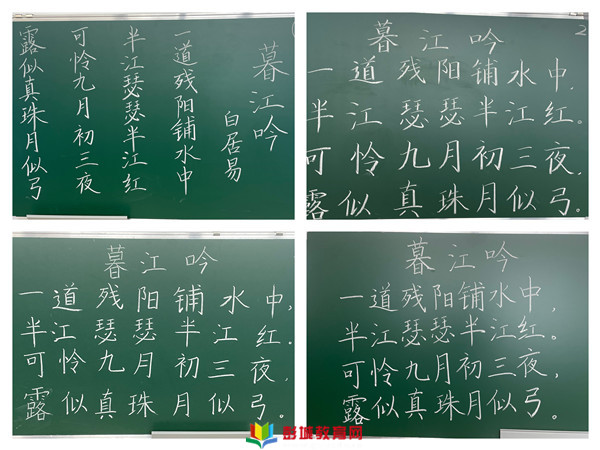 暮江吟
白居易
一道残阳铺水中
半江瑟瑟半江红
可怜九月初三夜
露似真珠月似弓
暮江吟 2
一道残阳铺水中,
半江瑟瑟半江红。
可怜九月初三夜,
露似真珠月似弓。
暮江吟
一道残阳铺水中,
半江瑟瑟半江红.
可怜九月初三夜,
露似真珠月似弓。
暮江吟
一道残阳铺水中,
半江瑟瑟半江红。
可怜九月初三夜,
露似真珠月似弓。
彭城教育网